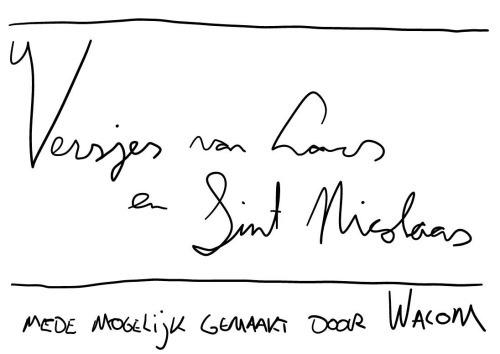 Versjes van Laurs
en Sint Nicolaas
MEDE MOGELIJK GEMAAKT DOOR WACOM